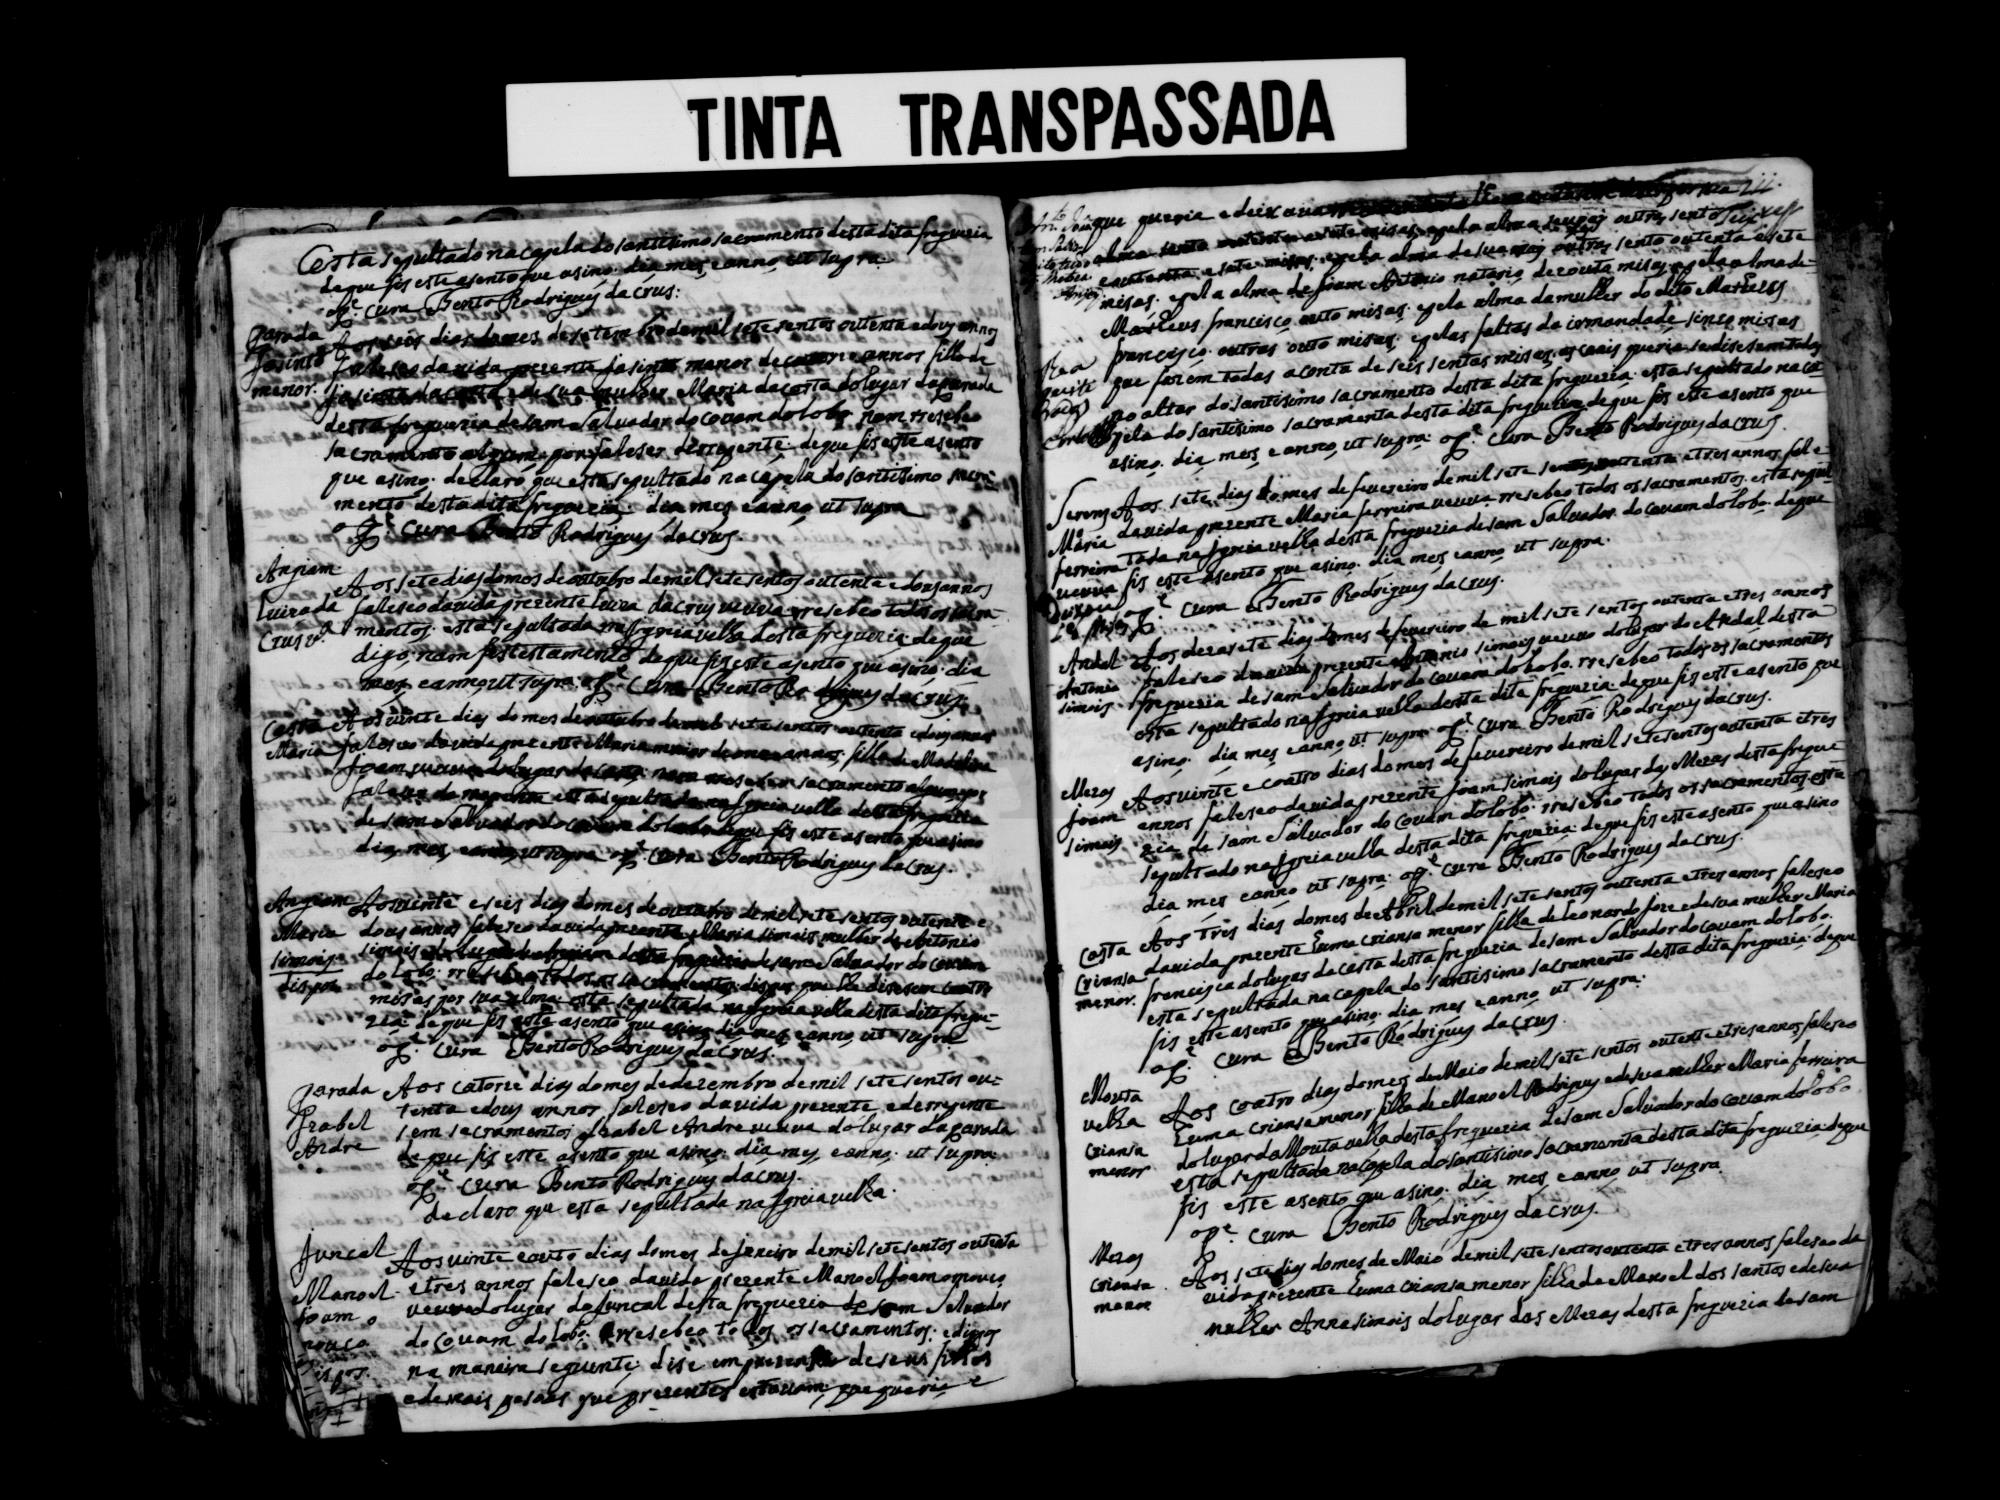 TINTA TRANSPASSADA
Esta sepultado na capela do santisimo sacramento desta dita freguezia
de que fis este asento que asino. dia mes e anno ut supra
o Pe. Cura Bento Rodrigues da crus:
parada
Jasinto
menor.
Aos seis dias do mes de setembro de mil sete sentos outenta e dous annos
faleseo da vida prezente Jasinto menor de annos fillo de
Jasinto da costa e de sua mulher Maria da costa do lugar da parada
desta freguezia de sam Salvador do Couam do lobo nam resebeo
sacramento algum por faleser de repente: de que fis este asento
que asino: declaro que esta sepultado na capela do santisimo sacra
mento desta dita freguezia: dia mes e anno ut supra
o Pe. Cura Bento Rodrigues da crus.
Angiam
Luiza da
Crus va.
Aos sete dias do mes de outubro de mil sete sentos outenta e dous annos
faleseo da vida prezente Luiza da crus veuva resebeo todos os sacra-
mentos. esta sepultada na Igreia vella desta freguezia de que
digo, nam fes testamento de que fis este asento que asino. dia
mes e anno ut supra. o Pe. Cura Bento Rodrigues da Crus.
Costa
Maria
Aos vinte dias do mes de outubro de mil sete sentos outenta e dous annos
faleseo da vida prezente Maria menor de annos, filla de Madalena
Joam veuva do lugar da Costa: nam resebeo sacramento algum por
faleser esta sepultada na Igreia vella desta freguezia
de sam Salvador do Couam do lobo de que fis este asento que asino
dia, mes, e anno, ut supra o Pe. Cura Bento Rodrigues da Crus.
Angeam
Maria
simois.
dispos.
Aos vinte e seis dias do mes de outubro de mil sete sentos outenta e
dous annos faleseo da vida prezente Maria simois mulher de Antonio
simois do lugar do Angiam desta freguezia de sam Salvador do Couam
do lobo. resebeo todos os sacramentos: dispos que lhe disesem coatro
misas por sua alma. esta sepultada na Igreia vella desta dita fregue-
zia: de que fis este asento que asino dia mes e anno, ut supra
o Pe. Cura Bento Rodrigues da Crus.
parada
Izabel
Andre
Aos catorze dias do mes de dezembro de mil sete sentos ou-
tenta e dous annos faleseo da vida prezente e de repente
sem sacramentos Izabel Andre veuva do lugar da parada
de que fis este asento que asino. dia, mes e anno. ut supra.
o Pe. Cura Bento Rodrigues da crus.
declaro que esta sepultada na Igreia vella.
Juncal
Manoel
Joam
mouco
dispos.
Aos vinte e outo dias do mes de Janeiro de mil sete sentos outenta
e tres annos faleseo da vida prezente Manoel Joam o mouco
veuvo do lugar do Juncal desta freguezia de sam Salvador
do Couam do lobo: resebeo todos os sacramentos: e dispos
na maneira seguinte: dise em prezensa de seus fillos
e de mais pesoas que prezentes estavam que queria e
que queria e deixava
alma sento outenta e sete misas, e pela alma de seu pay outras sento
e outenta e sete misas. e pela alma de sua may outras sento outenta e sete
misas. e pela alma de Joam Antonio natario dezouto misas, e pela alma de
Mateus francisco outo misas. e pela alma da mulher do dito Mateus
francisco outras outo misas. e pelas faltas da irmandade sinco misas
que fazem todas a conta de seis sentas misas: as coais queria se disesem todas
no altar do santisimo sacramento desta dita freguezia: esta sepultado na ca-
pela do santisimo sacramento desta dita freguezia de que fis este asento que
asino. dia mes e anno, ut supra: o Pe. Cura Bento Rodrigues da Crus.
Maria
ferreira
veuva
Aos sete dias do mes de fevereiro de mil sete sentos outenta e tres annos fale
da vida prezente Maria ferreira veuva. resebeo todos os sacramentos. esta sepul
tada na Igreia vella desta freguezia de sam Salvador do Couam do lobo. de que
fis este asento que asino. dia mes e anno ut supra.
o Pe. Cura Bento Rodrigues da Crus.
Andal
Antonio
simois
Aos dezasete dias do mes de fevereiro de mil sete sentos outenta e tres annos
faleseo da vida prezente Antonio simois veuvo do lugar do Andal desta
freguezia de sam Salvador do Couam do lobo. resebeo todos os sacramentos
esta sepultado na Igreia vella desta dita freguezia: de que fis este asento que
asino. dia mes e anno ut supra o Pe. Cura Bento Rodrigues da Crus.
Mezas
Joam
simois
Aos vinte e coatro dias do mes de fevereiro de mil sete sentos outenta e tres
annos faleseo da vida prezente Joam simois do lugar das Mezas desta fregue
zia de sam Salvador do Couam do lobo: resebeo todos os sacramentos. esta
sepultado na Igreia vella desta dita freguezia: de que fis este asento que asino
dia mes e anno ut supra. o Pe. Cura Bento Rodrigues da Crus.
Costa
Criansa
menor.
Aos tres dias do mes de Abril de mil sete sentos outenta e tres annos faleseo
da vida prezente huma criansa menor filla de leonardo Joze e de sua mulher Maria
francisca do lugar da costa desta freguezia de sam Salvador do Couam do lobo.
esta sepultada na capela do santisimo sacramento desta dita freguezia: de que
fis este asento que asino. dia mes e anno ut supra:
o Pe. Cura Bento Rodrigues da crus.
Mouta
velha
Criansa
menor
Aos coatro dias do mes de Maio de mil sete sentos outenta e tres annos faleseo
huma criansa menor filla de Manoel Rodrigues e de sua mulher Maria ferreira
do lugar da Mouta velha desta freguezia de sam Salvador do Couam do lobo
esta sepultada na capela do santisimo sacramento desta dita freguezia: de que
fis este asento que asino. dia mes e anno ut supra.
o Pe. Cura Bento Rodrigues da crus.
Mezas
Criansa
menor
Aos sete dias do mes de Maio de mil sete sentos outenta e tres annos faleseo da
vida prezente huma criansa menor filla de Manoel dos santos e de sua
mulher Anna simois do lugar das Mezas desta freguezia de sam